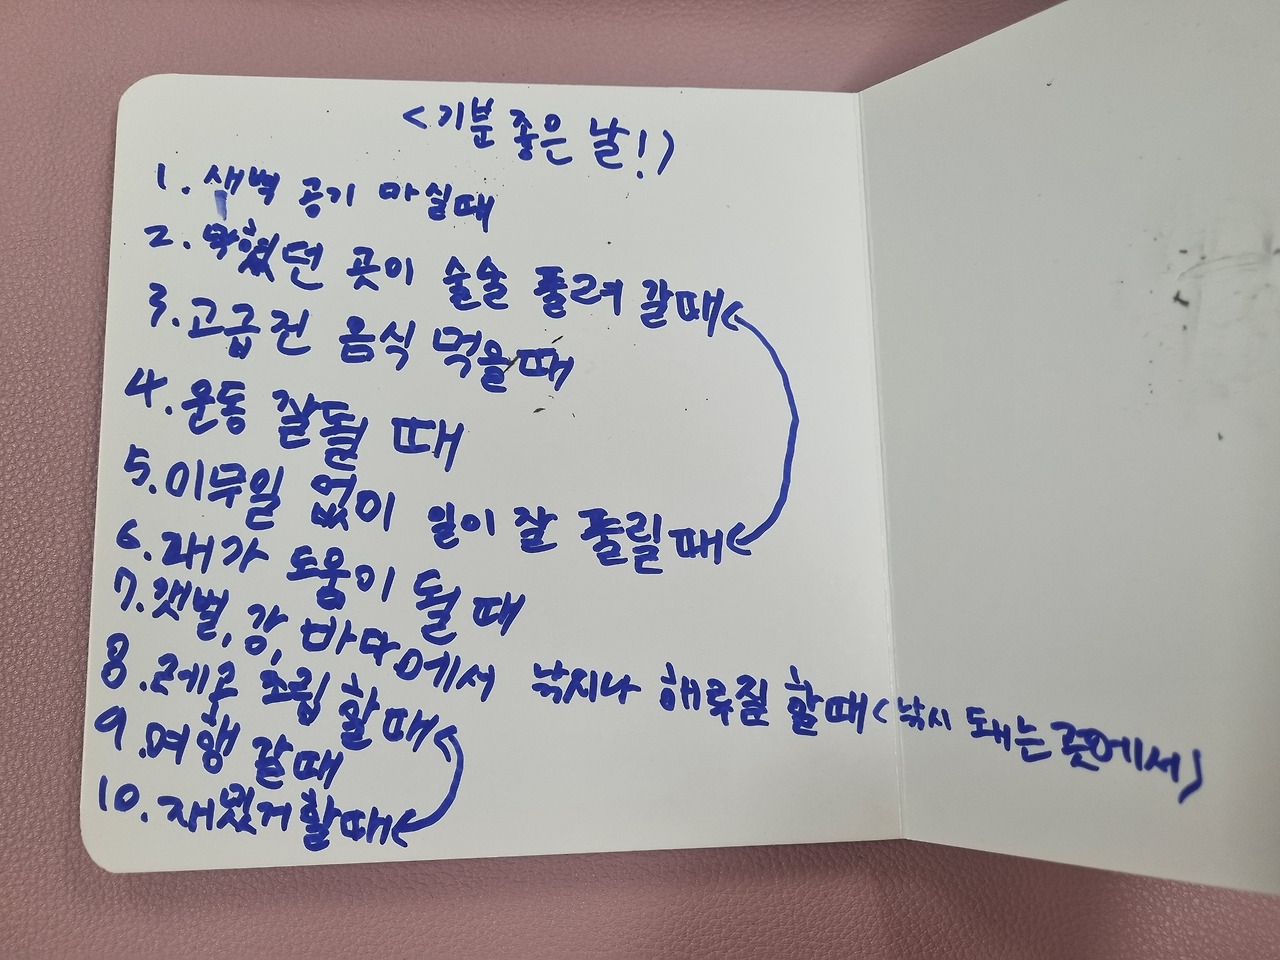 <기분 좋은 날!>
1. 새벽 공기 마실때
2. 막혔던 곳이 술술 풀려 갈때
3. 고급진 음식 먹을때
4. 운동 잘될 때
5. 아무일 없이 일이 잘 풀릴때
6. 내가 도움이 될 때
7. 갯벌, 강, 바다에서 낚시나 해루질 할때(낚시 돼는 곳에서)
8. 레고 조립 할때
9. 여행 갈때
10. 재밌게 할때